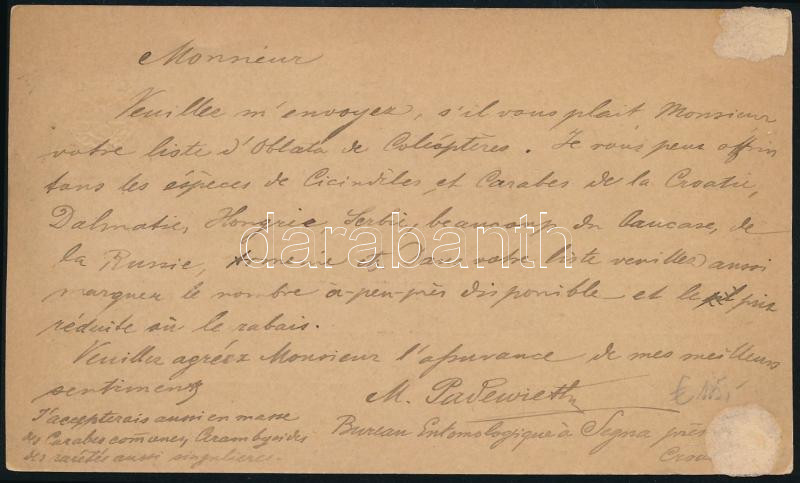 Monsieur
Veuillez m'envoyez, s'il vous plait Monsieur
votre liste d'Oblata de Coléoptères. Je vous peux offrir
tous les éspèces de Cicindèles et Carabes de la Croatie,
Dalmatie, Hongrie, Serbie, beaucoup du Caucase, de
la Russie, Armenie etc. Dans votre liste veuillez aussi
marquer le nombre à-peu-près disponible et le prix
réduite où le rabais.
Veuillez agréez Monsieur l'assurance de mes meilleurs
sentiments
M. Padewieth
J'accepterais aussi en masse
des Carabes comunes, Cerambycides
des raretés aussi singulieres.
Bureau Entomologique à Segna près
darabanth